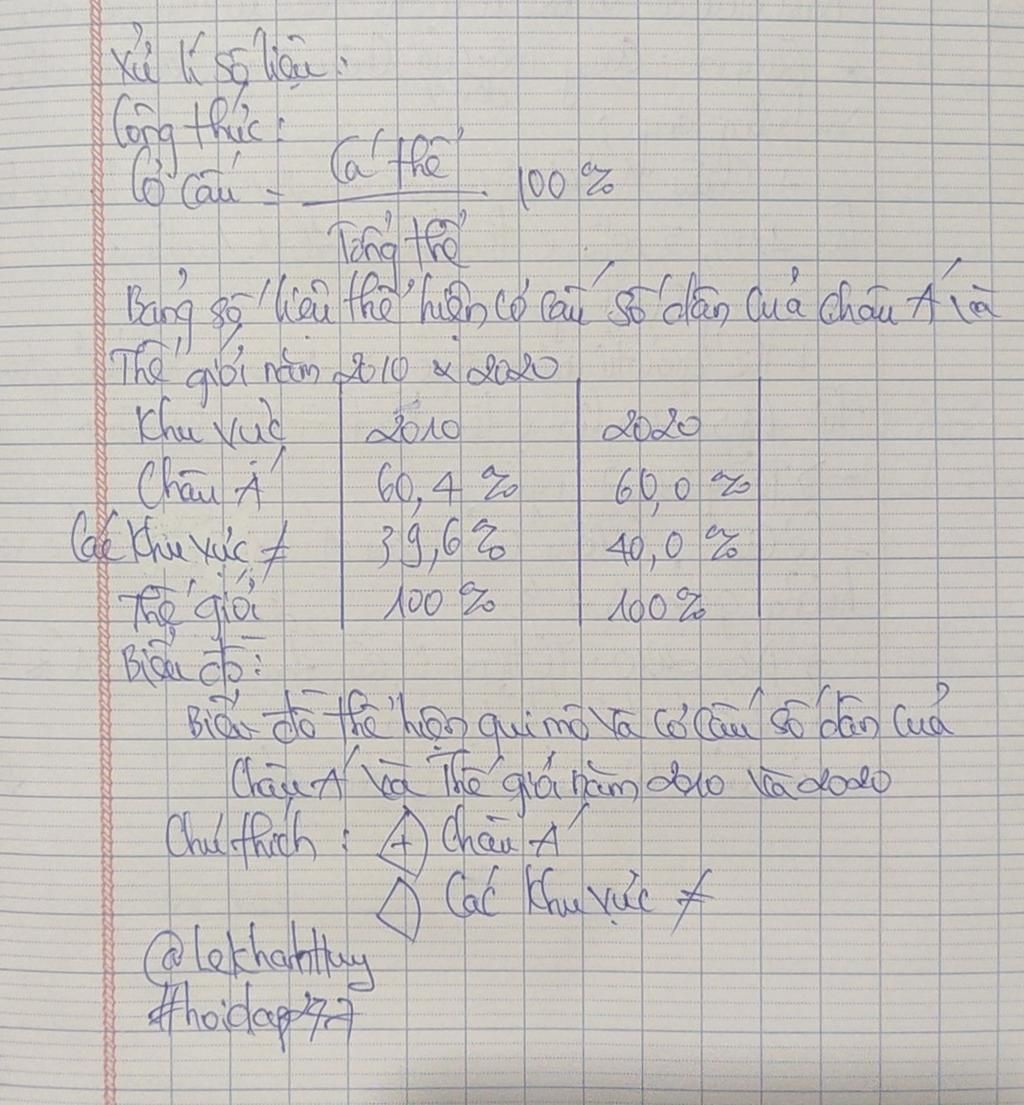 Xử lí số liệu:
Công thức:
Cơ cấu = Cá thể / Tổng thể . 100 %
Bảng số liệu thể hiện cơ cấu số dân của châu Á và
Thế giới năm 2010 & 2020
Khu vực 2010 2020
Châu Á 60,4 % 60,0 %
Các khu vực ≠ 39,6 % 40,0 %
Thế giới 100 % 100 %
Biểu đồ:
Biểu đồ thể hiện qui mô và cơ cấu số dân của
Châu Á và Thế giới năm 2010 và 2020
Chú thích : + Châu Á
Các khu vực ≠
@LekhanhHuy
#hoidap247